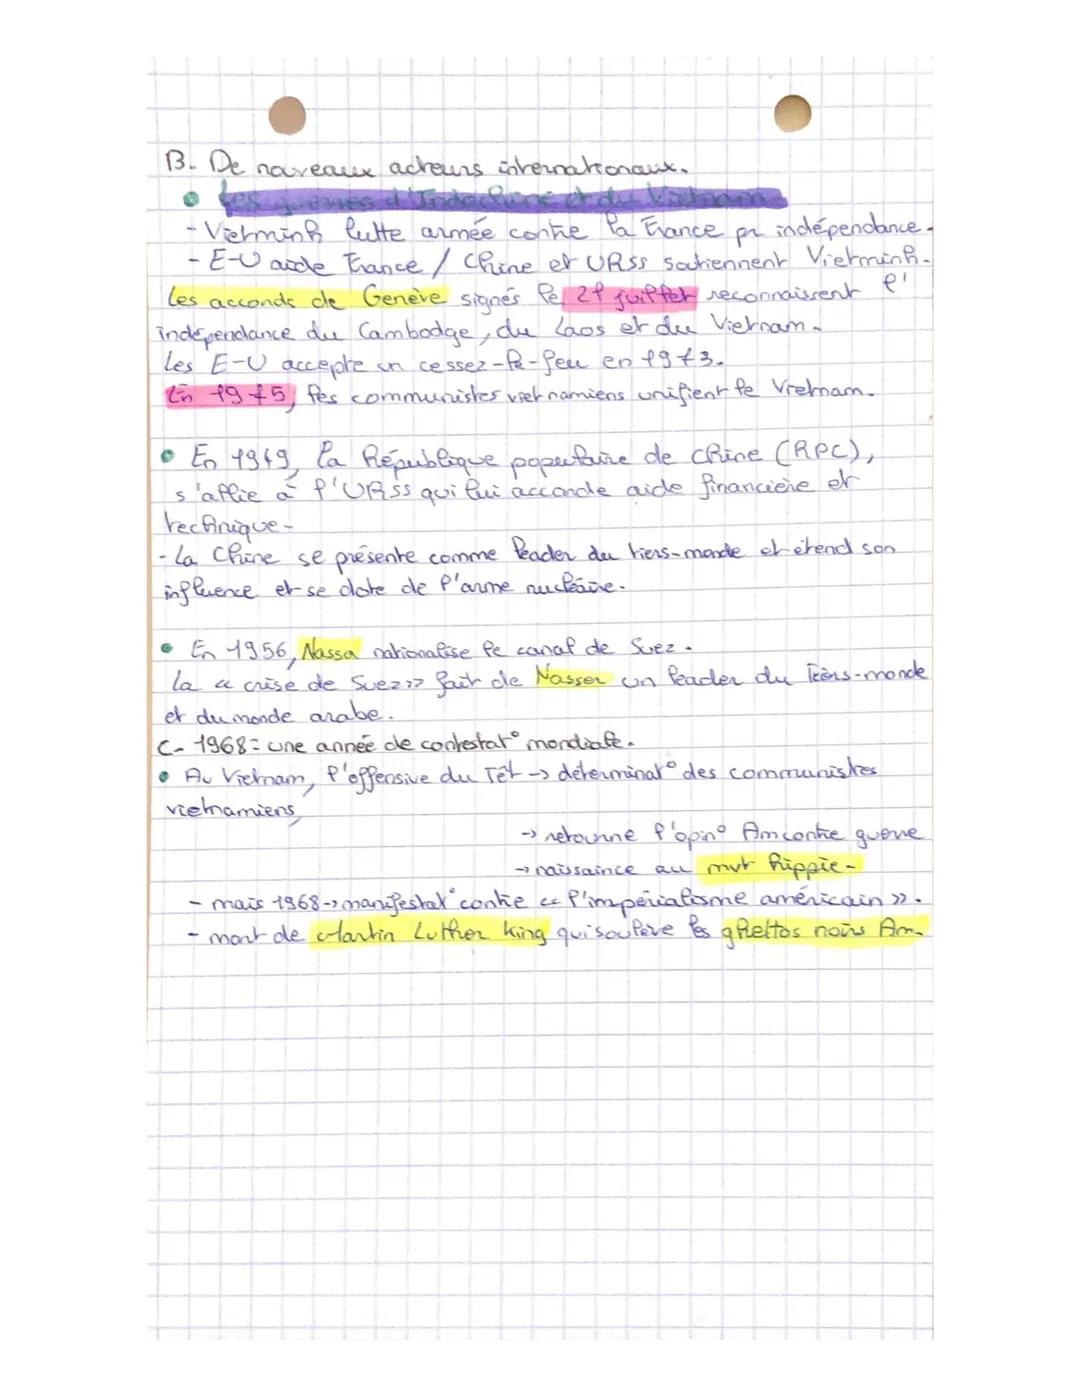 B. De nouveaux acteurs internationaux.
• Les guerres d'Indochine et du Vietnam
- Vietminh lutte armée contre la France pr indépendance.
- E-U aide France / Chine et URSS soutiennent Vietminh.
Les accords de Genève signés le 21 juillet reconnaissent l'
indépendance du Cambodge, du Laos et du Vietnam.
Les E-U accepte un cessez-le-feu en 1973.
En 1975, les communistes vietnamiens unifient le Vietnam.
• En 1949, la République populaire de Chine (RPC),
s'allie à l'URSS qui lui accorde aide financière et
technique.
- La Chine se présente comme leader du tiers-monde et étend son
influence et se dote de l'arme nucléaire.
• En 1956, Nassa nationalise le canal de Suez.
La « crise de Suez» fait de Nasser un leader du Tiers-monde
et du monde arabe.
C- 1968 = une année de contestat° mondiale.
• Au Vietnam, l'offensive du Têt -> déterminat° des communistes
vietnamiens,
-> retourne l'opin° Am contre guerre
-> naissaince au mvt hippie.
- mais 1968 -> manifestat° contre « l'impérialisme américain ».
- mort de Martin Luther King qui soulève les ghettos noirs Am.